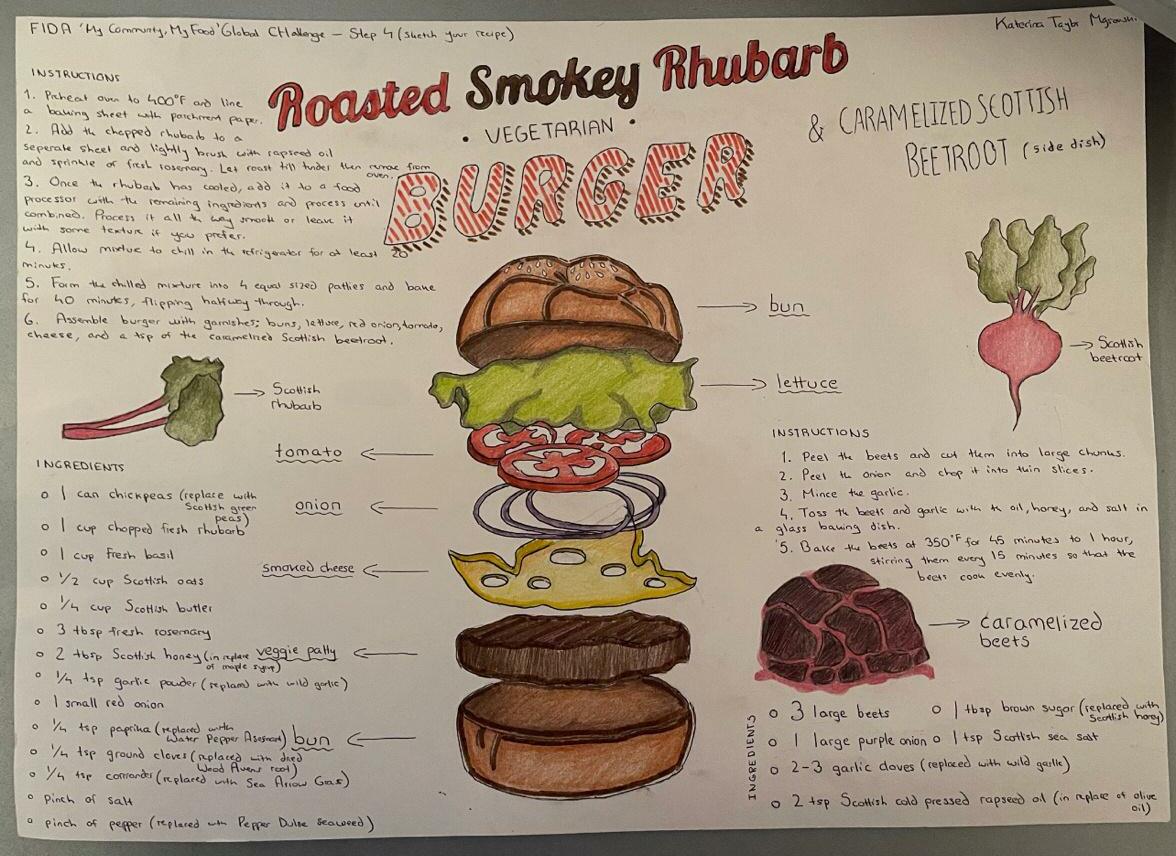 FIDA 'My Community, My Food' Global CHallenge – Step 4 (sketch your recipe)
Katerina Taylr
Roasted Smokey Rhubarb
• VEGETARIAN •
BURGER
& CARAMELIZED SCOTTISH
BEETROOT (side dish)
INSTRUCTIONS
1. Preheat oven to 400°F and line
a baking sheet with parchment paper.
2. Add the chopped rhubarb to a
seperate sheet and lightly brush with rapseed oil
and sprinkle of fresh rosemary. Let roast till tender then remove from
oven.
3. Once the rhubarb has cooled, add it to a food
processor with the remaining ingredients and process until
combined. Process it all the way smooth or leave it
with some texture if you prefer.
4. Allow mixture to chill in the refrigerator for at least 20
minutes.
5. Form the chilled mixture into 4 equal sized patties and bake
for 40 minutes, flipping halfway through.
6. Assemble burger with garnishes; buns, lettuce, red onion, tomato,
cheese, and a tsp of the caramelized Scottish beetroot.
Scottish
rhubarb
INGREDIENTS
1 can chickpeas (replace with
Scottish green
peas)
1 cup chopped fresh rhubarb
1 cup fresh basil
1/2 cup Scottish oats
1/4 cup Scottish butter
3 tbsp fresh rosemary
2 tbsp Scottish honey (in replace
of maple syrup)
1/4 tsp garlic powder (replaced with wild garlic)
1 small red onion
1/4 tsp paprika (replaced with
Water Pepper)
1/4 tsp ground cloves (replaced with dried
Wood Avens root)
1/4 tsp corriander (replaced with Sea Arrow Grass)
pinch of salt
pinch of pepper (replaced with Pepper Dulse Seaweed)
bun
lettuce
tomato
onion
smoked cheese
veggie patty
bun
Scottish
beetroot
INSTRUCTIONS
1. Peel the beets and cut them into large chunks.
2. Peel the onion and chop it into thin slices.
3. Mince the garlic.
4. Toss the beets and garlic with the oil, honey, and salt in
a glass baking dish.
5. Bake the beets at 350°F for 45 minutes to 1 hour,
stirring them every 15 minutes so that the
beets cook evenly.
caramelized
beets
INGREDIENTS
3 large beets
1 large purple onion
2-3 garlic cloves (replaced with wild garlic)
2 tsp Scottish cold pressed rapseed oil (in replace of olive
oil)
1 tbsp brown sugar (replaced with
Scottish honey)
1 tsp Scottish sea salt